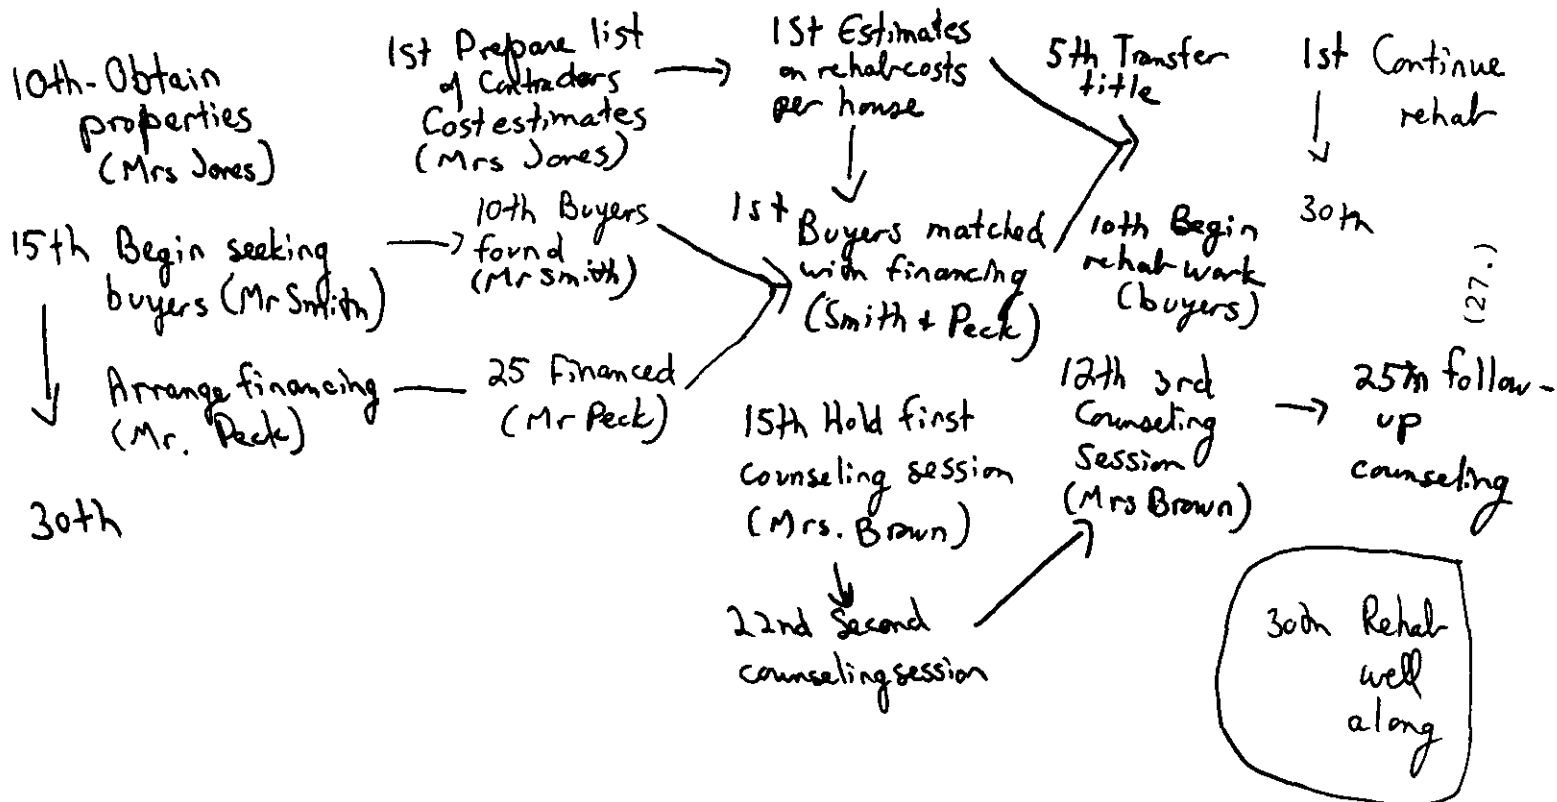 10th-Obtain
properties
(Mrs Jones)
15th Begin seeking
buyers (Mr Smith)
Arrange financing
(Mr. Peck)
30th
1st Prepare list
of Contractors
Cost estimates
(Mrs Jones)
10th Buyers
found
(Mr Smith)
25 Financed
(Mr Peck)
1st Estimates
on rehab costs
per house
1st Buyers matched
with financing
(Smith + Peck)
15th Hold first
counseling session
(Mrs. Brown)
22nd Second
counseling session
5th Transfer
title
10th Begin
rehab work
(buyers)
12th 3rd
Counseling
Session
(Mrs Brown)
1st Continue
rehab
30th
(27.)
25th follow-
up
counseling
30th Rehab
well
along